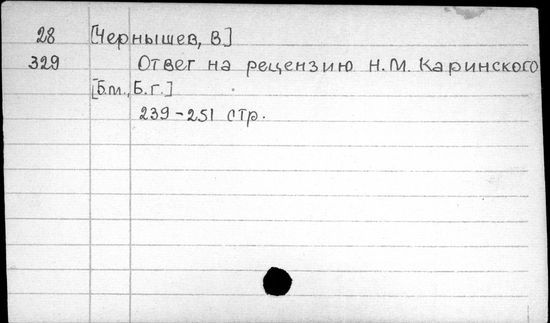 28 [Чернышев, В]
329 Ответ на рецензию Н.М. Каринского
[Б.м., Б.г.]
239-251 стр.